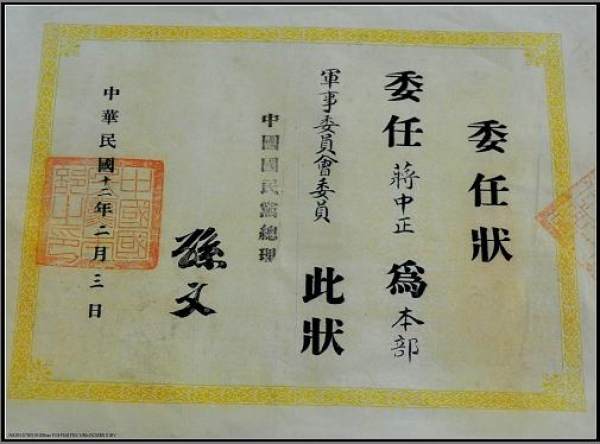 委任狀
委任蔣中正為本部
軍事委員會委員
此狀
中國國民黨總理
孫文
中華民國十二年二月三日